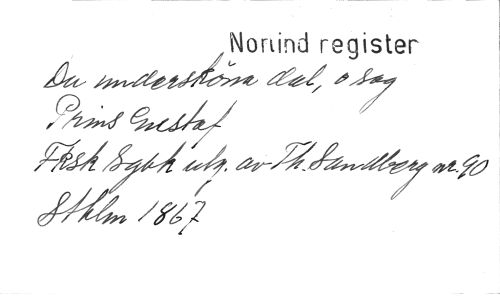 Norlind register
Du undersköna dal, o sag
Prins Gustaf
Fksk Sgbk utg. av Th. Sandberg nr. 90
Sthlm 1867